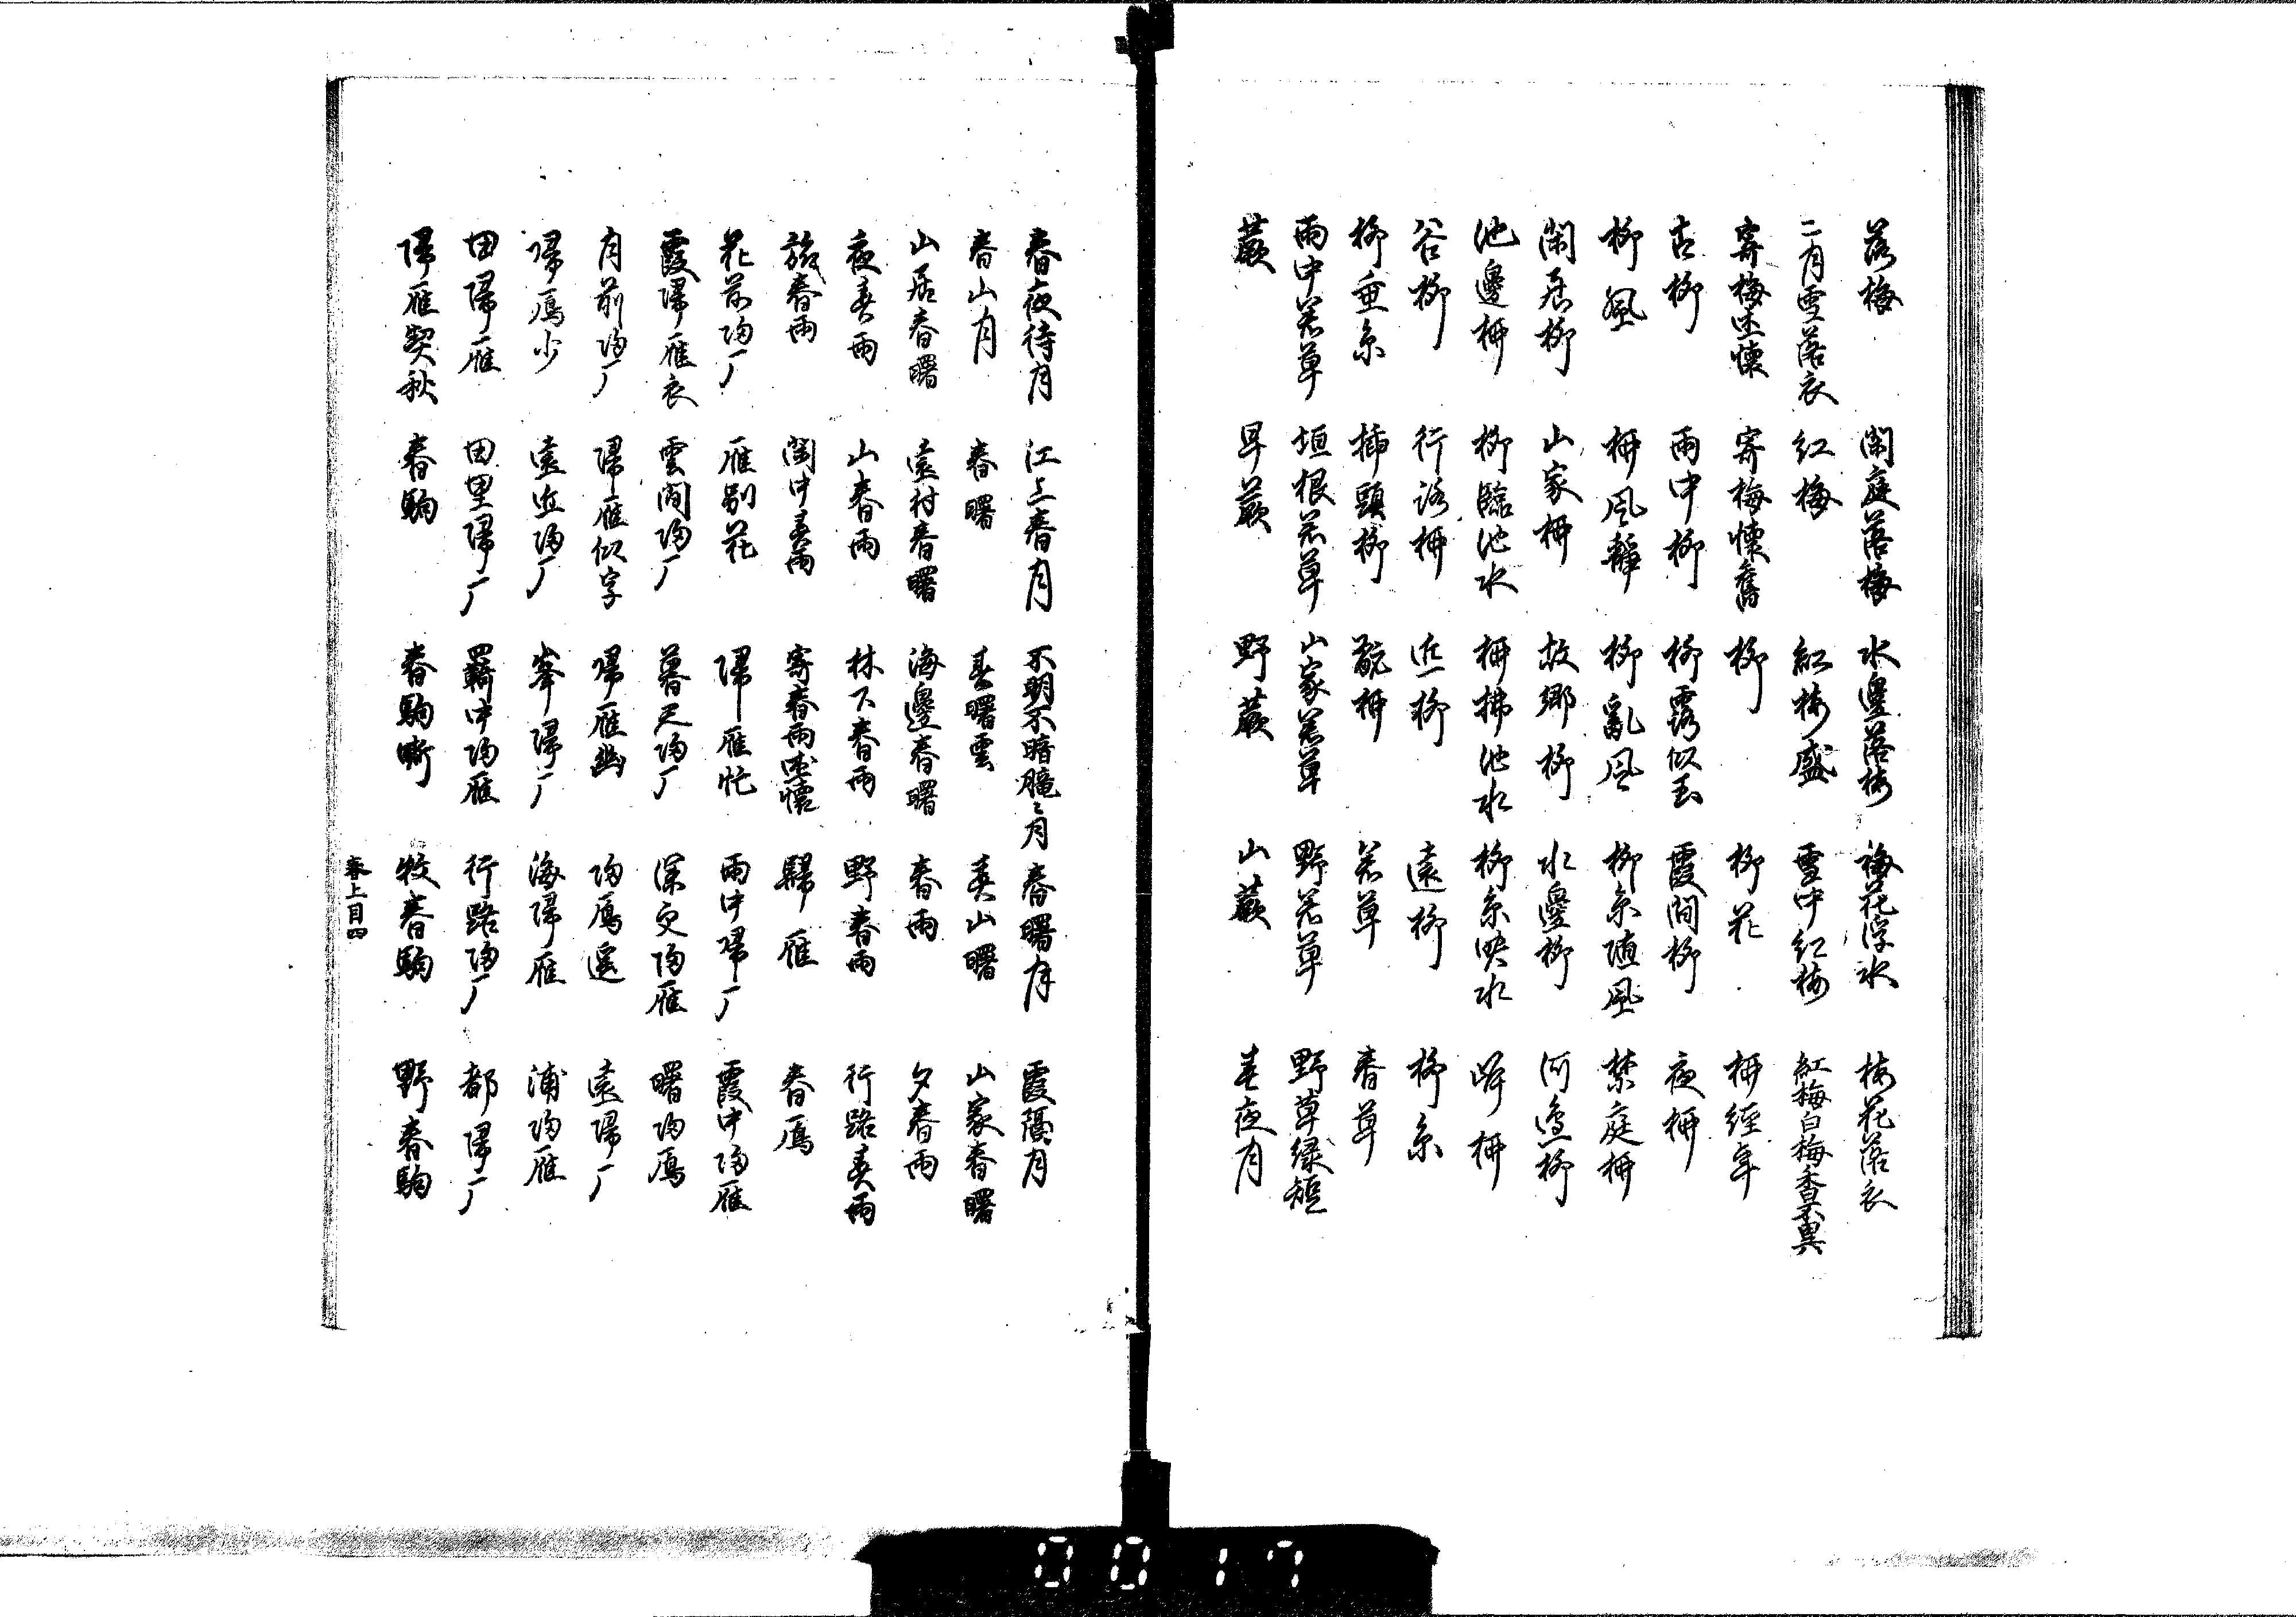 落梅 閑庭落梅 水邊落梅 梅花浮水 梅花落衣
二月雪落衣 紅梅 紅梅盛 雪中紅梅 紅梅白梅香異
寄梅述懐 寄梅懐舊 柳 柳花 柳經年
古柳 雨中柳 柳露似玉 霞間柳 夜柳
柳風 柳風静 柳亂風 柳糸随風 禁庭柳
閑居柳 山家柳 故郷柳 水邊柳 河邊柳
池邊柳 柳臨池水 柳拂池水 柳糸映水 岸柳
谷柳 行路柳 近柳 遠柳 柳糸
柳垂糸 插頭柳 翫柳 若草 春草
雨中若草 垣根若草 山家若草 野若草 野草緑短
蕨 早蕨 野蕨 山蕨 春夜月
春夜待月 江上春月 不明不暗朧々月 春曙月 霞隔月
春山月 春曙 春曙雲 春山曙 山家春曙
山居春曙 遠村春曙 海邊春曙 春雨 夕春雨
夜春雨 山春雨 林下春雨 野春雨 行路春雨
旅春雨 閑中春雨 寄春雨述懐 歸雁 春鴈
花前帰厂 雁別花 帰雁忙 雨中帰厂 霞中帰雁
霞帰雁衣 雲間帰厂 暮天帰厂 深更帰雁 曙帰鴈
月前帰厂 帰雁似字 帰雁幽 帰鴈遥 遠帰厂
帰鴈少 遠近帰厂 峯帰厂 海帰雁 浦帰雁
田帰雁 田里帰厂 羇中帰雁 行路帰厂 都帰厂
帰雁契秋 春駒 春駒嘶 牧春駒 野春駒
春上目四
0017